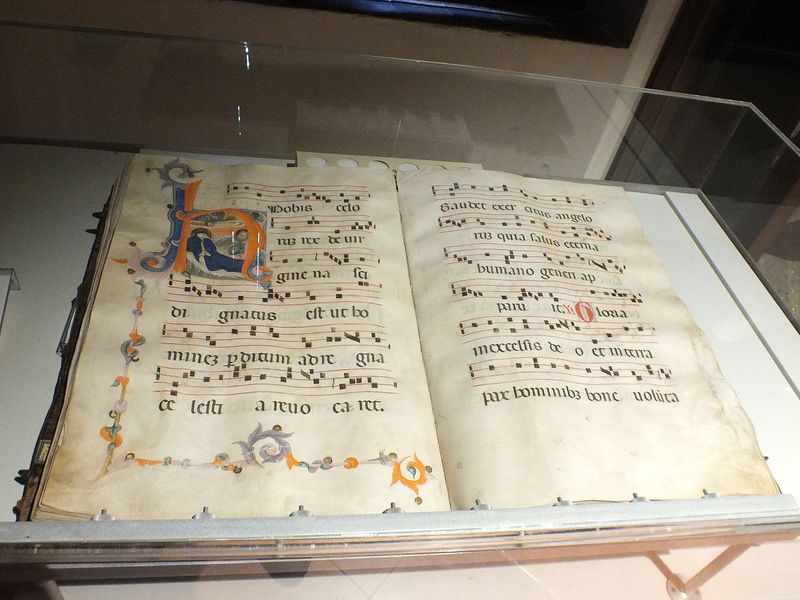 Hodie nobis celo
rum rex de uir
gine na sci
di gnatus est ut ho
minez pditum ad re gna
ce lesti a reuo ca ret.
Gaudet exer citus angelo
rum quia salus eterna
humano generi ap
paru it. V. Gloria
inexcelsis de o et interra
pax hominibz bone uolūta